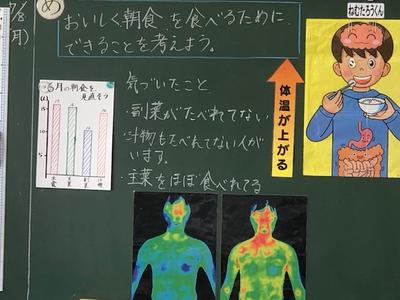 7/8
(月)
め
おいしく朝食を食べるために
できることを考えよう。
ねむたろうくん
6月の朝食を
見直そう
15
10
5
主食
主菜
副菜
汁物
気づいたこと
・副菜がたべれてない
・汁物もたべれてない人が
います。
・主菜をほぼ食べれてる
体温が上がる